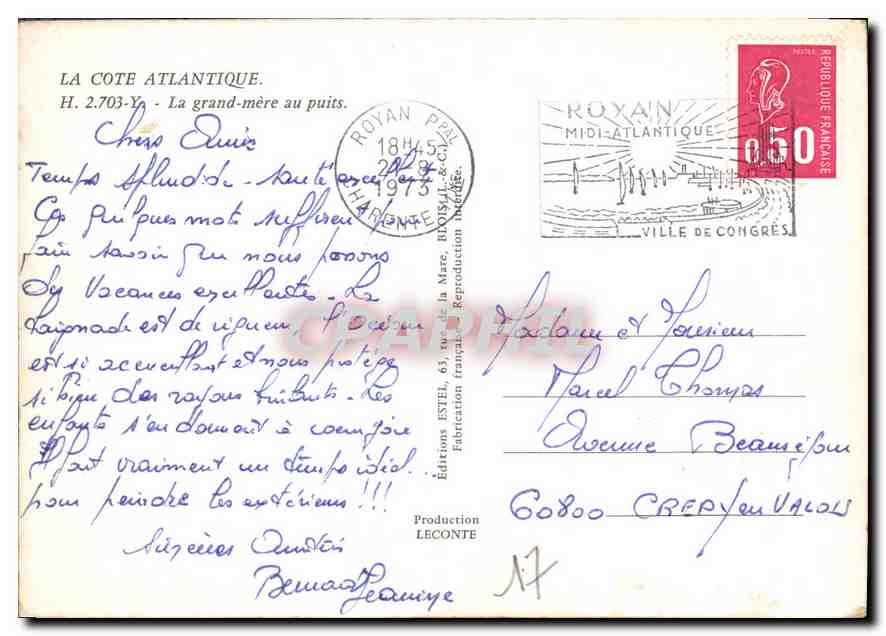 LA COTE ATLANTIQUE.
H. 2.703-Y. - La grand-mère au puits.
Chers Amis
Temps splendide - santé excellente
Ces quelques mots suffiront pour
faire savoir que nous passons
des Vacances excellentes - La
baignade est de rigueur, l'océan
est si accueillant et nous protège
si bien des rayons brûlants - Les
enfants s'en donnent à coeur joie
Il fait vraiment un temps idéal...
pour peindre les extérieurs !!!
Sincères Amitiés
Bernard Jeanine
ROYAN PPAL
18H45
1973
CHARENTE
ROYAN
MIDI-ATLANTIQUE
VILLE DE CONGRÈS
POSTES
REPUBLIQUE FRANÇAISE
0,50
Éditions ESTEL, 63, rue de la Mare, BLOIS (L.-&-C.)
Fabrication française - Reproduction interdite.
Production
LECONTE
Madame et Monsieur
Marcel Thomas
Avenue Beauséjour
60800 CREPY en VALOIS
17
CPAPHIL